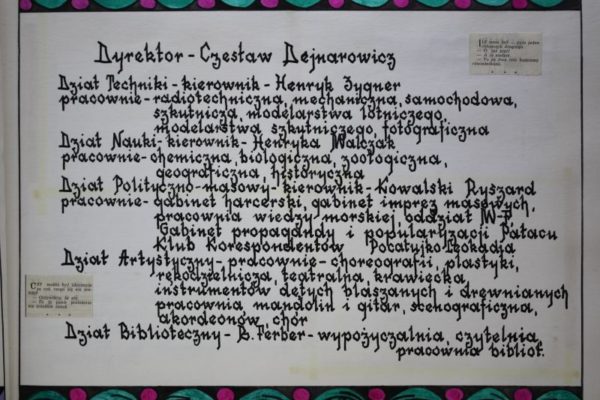 Dyrektor - Czesław Dejnarowicz
Dział Techniki - kierownik - Henryk Zygner
pracownie - radiotechniczna, mechaniczna, samochodowa,
szkutnicza, modelarstwa lotniczego,
modelarstwa szkutniczego, fotograficzna
Dział Nauki - kierownik - Henryka Walczak
pracownie - chemiczna, biologiczna, zoologiczna,
geograficzna, historyczna
Dział Polityczno-masowy - kierownik - Kowalski Ryszard
pracownie - gabinet harcerski, gabinet imprez masowych,
pracownia wiedzy morskiej, oddział
Gabinet propagandy i popularyzacji Pałacu
Klub Korespondentów Pocałujko Teokadia
Dział Artystyczny - pracownie - choreografii, plastyki,
rękodzielnicza, teatralna, krawiecka
instrumentów dętych blaszanych i drewnianych
pracownia mandolin i gitar, scenograficzna,
akordeonów, chór
Dział Biblioteczny - B. Ferber - wypożyczalnia, czytelnia,
pracownia bibliot.